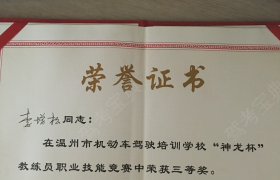 荣誉证书
李增权同志：
在温州市机动车驾驶培训学校“神龙杯”
教练员职业技能竞赛中荣获三等奖。